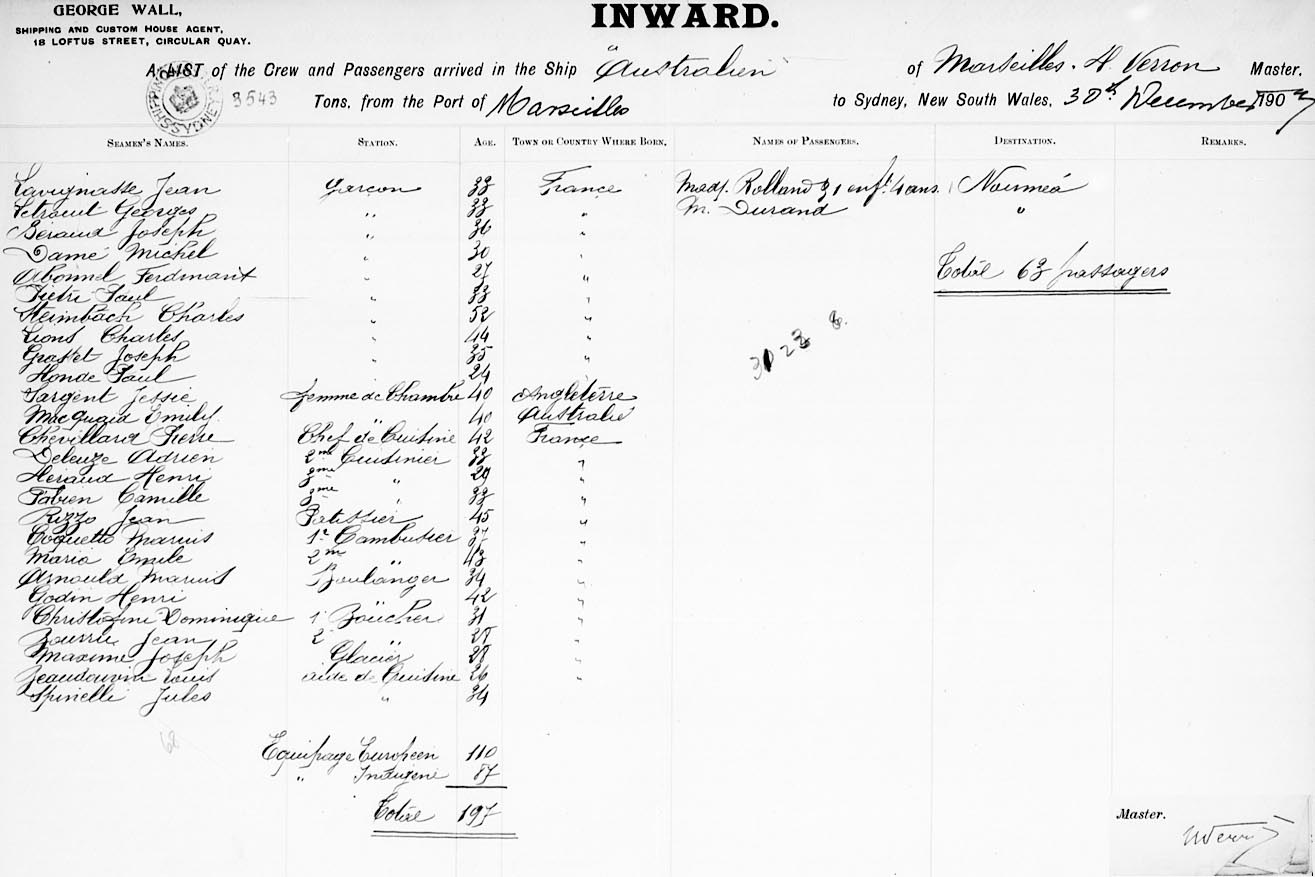 GEORGE WALL,
SHIPPING AND CUSTOM HOUSE AGENT,
18 LOFTUS STREET, CIRCULAR QUAY.
INWARD.
A LIST of the Crew and Passengers arrived in the Ship "Australien" of Marseilles. A. Verron Master.
3543 Tons, from the Port of Marseilles to Sydney, New South Wales, 30th December 1907
SEAMEN'S NAMES. STATION. AGE. TOWN OR COUNTRY WHERE BORN. NAMES OF PASSENGERS. DESTINATION. REMARKS.
Lavignasse Jean Garcon 33 France Mad. Rolland & 1 enft. 4 ans. Nouméa
Georges " 33 " M. Durand "
Beraud Joseph " 36 "
Damé Michel " 30 "
Abonnel Ferdinant " 27 "
Pietri Paul " 33 "
Steimbach Charles " 52 "
Lions Charles " 44 "
Grasset Joseph " 35 "
Honde Paul " 24 "
Sargent Jessie Femme de Chambre 40 Angleterre
MacQuaid Emily " 40 Australie
Chevillard Pierre Chef de Cuisine 42 France
Deleuze Adrien 2me Cuisinier 33 "
Heraud Henri 3me " 29 "
Fabien Camille 3me " 33 "
Rizzo Jean Patissier 45 "
Coquetto Marius 1r Cambusier 37 "
Maria Emile 2me " 43 "
Arnould Marius Boulanger 34 "
Godin Henri 42 "
Christofini Dominique 1 Boucher 31 "
Bourrie Jean 2 " 27 "
Maxime Joseph Glacier 27 "
Jeaudouvin Louis aide de Cuisine 26 "
Spinelli Jules " 34
Total 63 passagers
68
Equipage Europeen 110
" Indigene 87
Total 197
Master.